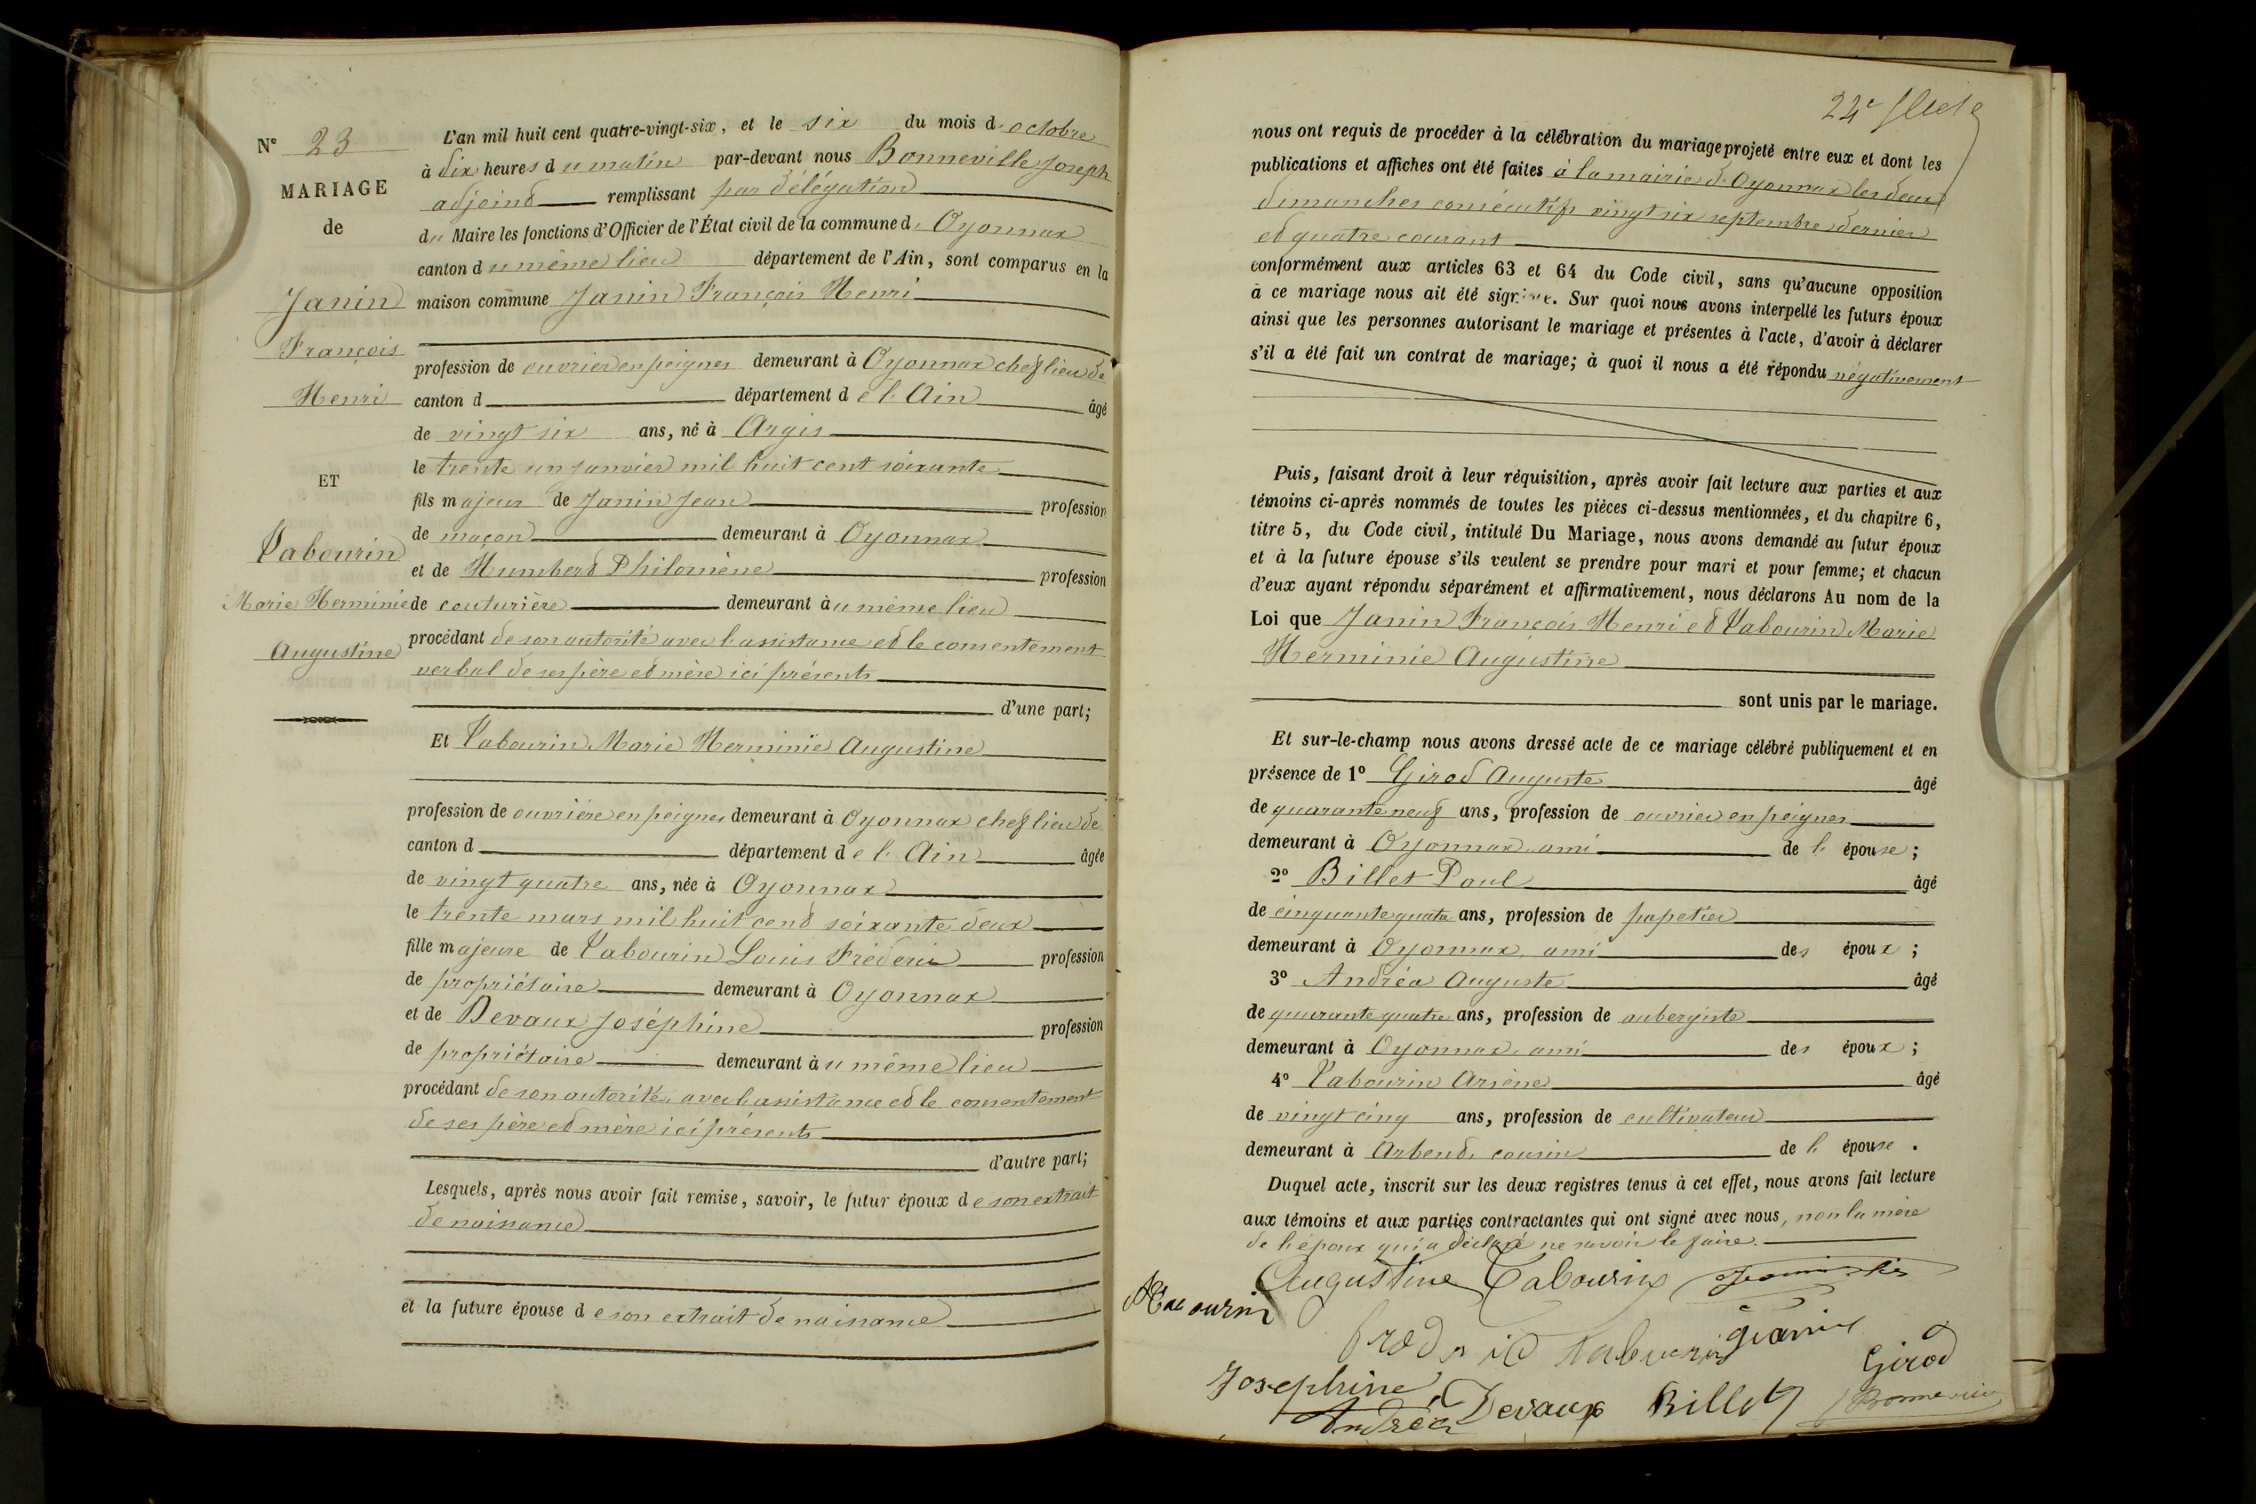 N° 23
MARIAGE
de
Janin
François
Henri
ET
Tabourin
Marie Herminie
Augustine
L'an mil huit cent quatre-vingt-six, et le six du mois d'octobre
à dix heures du matin par-devant nous Bonneville Joseph
adjoint remplissant par délégation
du Maire les fonctions d'Officier de l'État civil de la commune d'Oyonnax
canton du même lieu département de l'Ain, sont comparus en la
maison commune Janin François Henri
profession de ouvrier en peignes demeurant à Oyonnax chef lieu de
canton d département de l'Ain âgé
de vingt six ans, né à Argis
le trente un janvier mil huit cent soixante
fils majeur de Janin Jean profession
de maçon demeurant à Oyonnax
et de Humbert Philomène profession
de couturière demeurant au même lieu
procédant de son autorité avec l'assistance et le consentement
verbal de ses père et mère ici présents
d'une part;
Et Tabourin Marie Herminie Augustine
profession de ouvrière en peignes demeurant à Oyonnax chef lieu de
canton d département de l'Ain âgée
de vingt quatre ans, née à Oyonnax
le trente mars mil huit cent soixante deux
fille majeure de Tabourin Louis Fréderic profession
de propriétaire demeurant à Oyonnax
et de Devaux Joséphine profession
de propriétaire demeurant au même lieu
procédant de son autorité, avec l'assistance et le consentement
de ses père et mère ici présents
d'autre part;
Lesquels, après nous avoir fait remise, savoir, le futur époux de son extrait
de naissance
et la future épouse de son extrait de naissance
24e
nous ont requis de procéder à la célébration du mariage projeté entre eux et dont les
publications et affiches ont été faites à la mairie d'Oyonnax les deux
dimanches consécutifs vingt six septembre dernier
et quatre courant
conformément aux articles 63 et 64 du Code civil, sans qu'aucune opposition
à ce mariage nous ait été signifiée. Sur quoi nous avons interpellé les futurs époux
ainsi que les personnes autorisant le mariage et présentes à l'acte, d'avoir à déclarer
s'il a été fait un contrat de mariage; à quoi il nous a été répondu négativement
Puis, faisant droit à leur réquisition, après avoir fait lecture aux parties et aux
témoins ci-après nommés de toutes les pièces ci-dessus mentionnées, et du chapitre 6,
titre 5, du Code civil, intitulé Du Mariage, nous avons demandé au futur époux
et à la future épouse s'ils veulent se prendre pour mari et pour femme; et chacun
d'eux ayant répondu séparément et affirmativement, nous déclarons Au nom de la
Loi que Janin François Henri et Tabourin Marie
Herminie Augustine
sont unis par le mariage.
Et sur-le-champ nous avons dressé acte de ce mariage célébré publiquement et en
présence de 1° Girod Auguste âgé
de quarante neuf ans, profession de ouvrier en peignes
demeurant à Oyonnax, ami de l'épouse;
2° Billet Paul âgé
de cinquante quatre ans, profession de papetier
demeurant à Oyonnax, ami des époux;
3° Andréa Auguste âgé
de quarante quatre ans, profession de aubergiste
demeurant à Oyonnax, ami des époux;
4° Tabourin Arsène âgé
de vingt cinq ans, profession de cultivateur
demeurant à Arbent, cousin de l'épouse.
Duquel acte, inscrit sur les deux registres tenus à cet effet, nous avons fait lecture
aux témoins et aux parties contractantes qui ont signé avec nous, non la mère
de l'époux qui a déclaré ne savoir le faire.
Augustine Tabourin
Josephine Devaux Billet Girod
Andréa